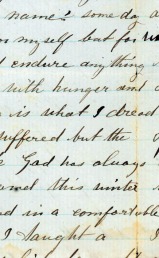 name? some day a
myself but for
endure anything
with hunger and
is what I dread
suffered but the
God has always
and this winter
in a comfortable
I taught a